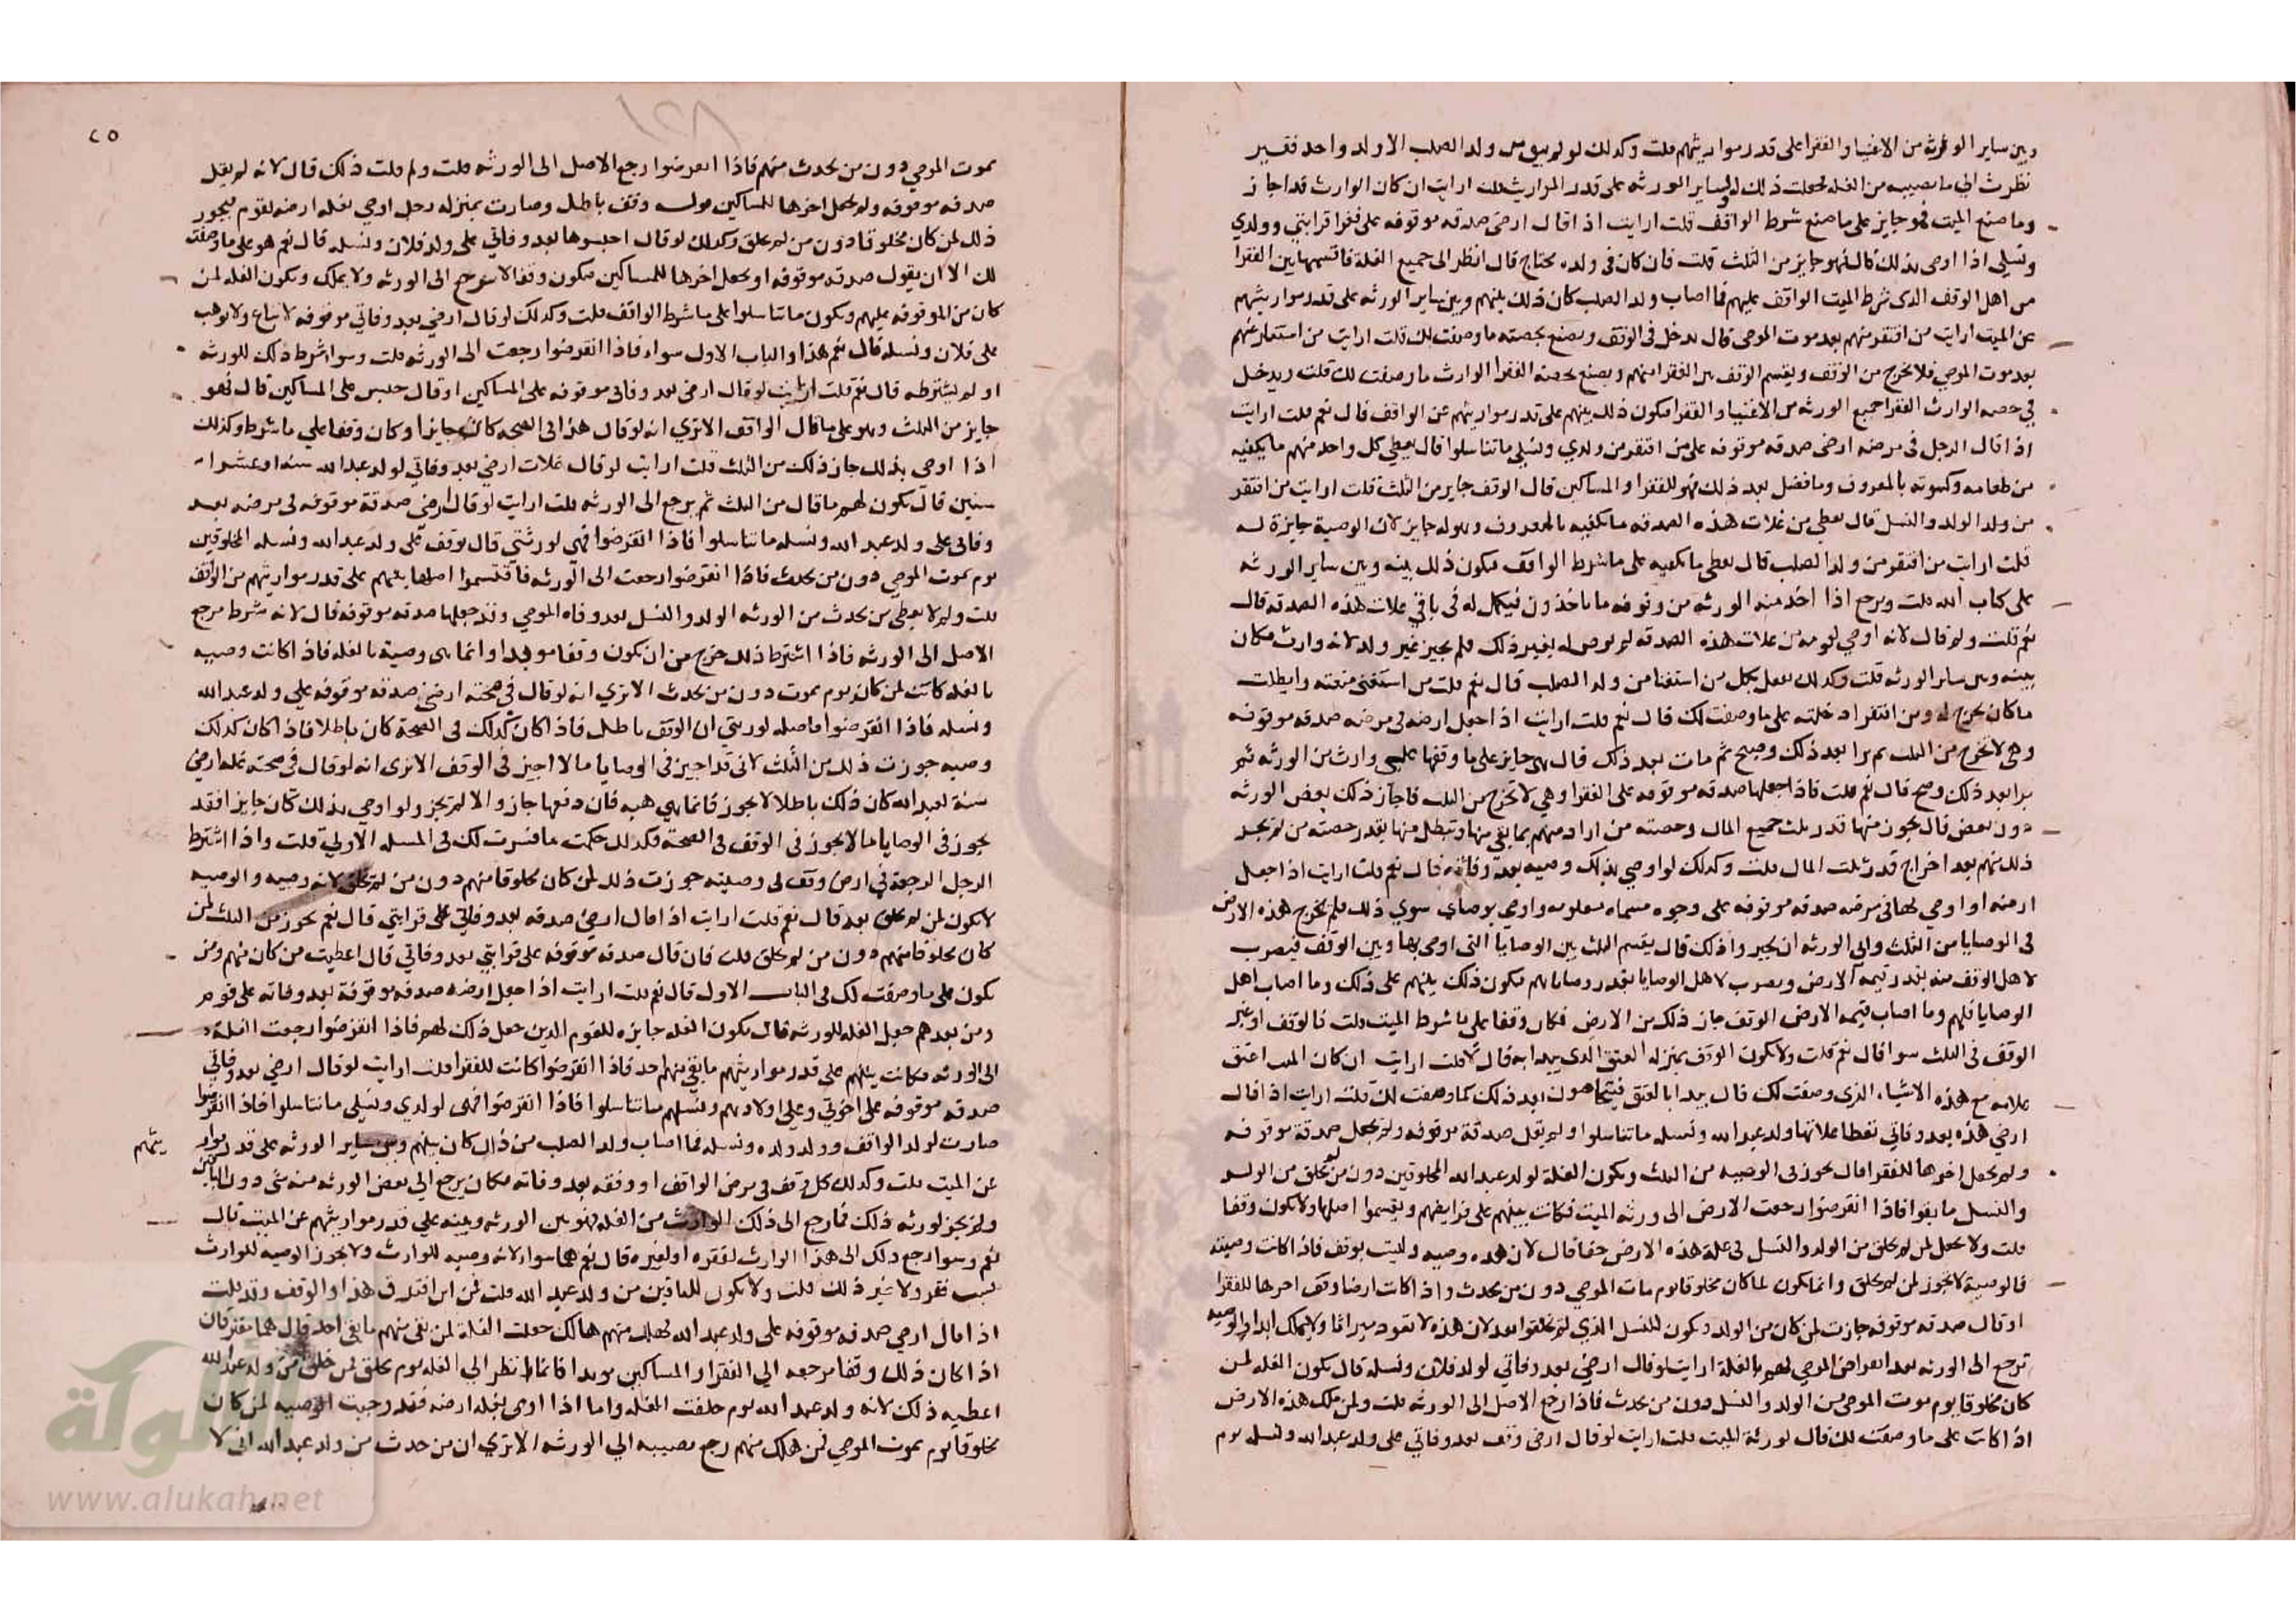 وبين ساير الورثة من الاغنيا والفقرا على قدر مواريثهم قلت وكذلك لو لم يبق من ولد الصلب الا ولد واحد فقير
نظرت الى ما يصيبه من الغله فجعلت ذلك له ولساير الورثه على قدر المواريث قلت ارايت ان كان الوارث قد اجاز
وما صنع الميت فهو جايز على ما صنع شرط الواقف قلت ارايت اذا قال ارضي صدقه موقوفه على فقرا قرابتي وولدي
ونسلي اذا اوصى بذلك قال فهو جايز من الثلث قلت فان كان في ولده محتاج قال انظر الى جميع الغلة فاقسمها بين الفقرا
من اهل الوقف الذى شرط الميت الواقف عليهم فما اصاب ولد الصلب كان ذلك بينهم وبين ساير الورثه على قدر مواريثهم
عن الميت ارايت من افتقر منهم بعد موت الموصى قال يدخل في الوقف ويصنع بحصته ما وصفت لك قلت ارايت من استغنا منهم
بعد موت الموصي فلا يخرج من الوقف ويقسم الوقف بين الفقرا منهم ويصنع بحصة الفقرا الوارث ما وصفت لك قلت ويدخل
في حصه الوارث الفقرا جميع الورثه من الاغنيا والفقرا فيكون ذلك بينهم على قدر مواريثهم عن الواقف قال نعم قلت ارايت
اذا قال الرجل في مرضه ارضي صدقه موقوفه على من افتقر من ولدي ونسلي ما تناسلوا قال يعطي كل واحد منهم ما يكفيه
من طعامه وكسوته بالمعروف وما فضل بعد ذلك فهو للفقرا والمساكين قال الوقف جايز من الثلث قلت ارايت من افتقر
من ولد الولد والنسل قال يعطي من غلات هذه الصدقه ما يكفيه بالمعروف وهو له جايز لان الوصية جايزة له
قلت ارايت من افتقر من ولد الصلب قال يعطى ما يكفيه على ما شرط الواقف فيكون ذلك بينه وبين ساير الورثه
على كتاب الله قلت ويرجع اذا اخذ منه الورثه من وقوفه ما ياخذون فيكمل له في باقي غلات هذه الصدقه قال
نعم قلت ولم قال لانه اوصي له بقوته من غلات هذه الصدقه لم يوص له بغير ذلك فلم يجيز غير ولد لانه وارث فكان
بينه وبين ساير الورثه قلت وكذلك يفعل بكل من استغنا من ولد الصلب قال نعم قلت من استغنى منعته وابطلت
ما كان يخرج له ومن افتقر ادخلته على ما وصفت لك قال نعم قلت ارايت اذا جعل ارضه في مرضه صدقه موقوفه
وهي لا تخرج من الثلث ثم برا بعد ذلك وصح ثم مات بعد ذلك قال هى جايز على ما وقفها على وارث من الورثه ثم
برا بعد ذلك وصح قال نعم قلت فاذا جعلها صدقه موقوفه على الفقرا وهي لا تخرج من الثلث فاجاز ذلك بعض الورثه
دون بعض قال يجوز منها قدر ثلث جميع المال وحصته من اراد منهم بما بقي منها وتبطل منها بقدر حصته من لم يجز
ذلك منهم بعد اخراج قدر ثلث المال قلت وكذلك لو اوصي بذلك وصيه بعد وفاته قال نعم قلت ارايت اذا جعل
ارضه او اوصي بها في مرضه صدقه موقوفه على وجوه مسماه معلومه واوصي بوصاي سوي ذلك فلم يخرج هذه الارض
في الوصايا من الثلث وابي الورثه ان يجيروا ذلك قال يقسم الثلث بين الوصايا التى اوصى بها وبين الوقف فيضرب
لاهل الوقف منه بقدر قيمه الارض ويضرب لاهل الوصايا بقدر وصاياهم فيكون ذلك بينهم على ذلك وما اصاب اهل
الوصايا فلهم وما اصاب قيمه الارض الوقف جاز ذلك من الارض فكان وقفا على ما شرط الميت قلت فالوقف اوغير
الوقف في الثلث سوا قال نعم قلت ولا يكون الوقف بمنزله العتق الذي يبدا به قال لا قلت ارايت ان كان الميت اعتق
غلامه مع هذه الاشياء الذي وصفت لك قال يبدا بالعتق فيتحاصون بعد ذلك كما وصفت لك قلت ارايت اذا قال
ارضي هذه بعد وفاتي تعطا غلاتها ولد عبد الله ونسله ما تناسلوا ولم يقل صدقة موقوفه ولم يجعل صدقة موقوفه
ولم يجعل اخرها للفقرا قال يجوز في الوصيه من الثلث ويكون الغلة لولد عبد الله المخلوقين دون من لم يخلق من الولد
والنسل ما بقوا فاذا انقرضوا رجعت الارض الى ورثه الميت فكانت بينهم على فرايضهم ويقسموا اصلها ولا يكون وقفا
قلت ولا يجعل لمن لم يخلق من الولد والنسل في غلة هذه الارض حقا قال لان هذه وصيه وليست بوقف فاذا كانت وصيته
فالوصية لا يجوز لمن لم يخلق وانما يكون لما كان مخلوقا يوم مات الموصي دون من يحدث واذا كانت ارضا وقف اخرها للفقرا
او قال صدقه موقوفه جازت لمن كان من الولد ويكون للنسل الذي لم يخلقوا بعد لان هذه لا تعود ميراثا ولا يملك ابدا والوصيه
ترجع الى الورثه بعد انقراض الموصي لهم بالغلة ارايت لو قال ارضي بعد وفاتي لولد فلان ونسله قال يكون الغله لمن
كان مخلوقا يوم موت الموصى من الولد والنسل دون من يحدث فاذا رجع الاصل الى الورثه قلت ولمن ملك هذه الارض
اذا كانت على ما وصفت لك قال لورثة الميت قلت ارايت لو قال ارضى وقف بعد وفاتي على ولد عبد الله ونسله يوم
٢٥
١٢٨
بموت الموصي دون من يحدث منهم فاذا انقرضوا رجع الاصل الى الورثه قلت ولم قلت ذلك قال لانه لم يقل
صدقه موقوفه ولم يجعل اخرها للمساكين وقف باطل وصارت بمنزله رجل اوصي بغله ارضه لقوم فيجوز
ذلك لمن كان مخلوقا دون من لم يخلق وكذلك لو قال احبسوها بعد وفاتي على ولد فلان ونسله قال نعم هو على ما وصفت
لك الا ان يقول صدقه موقوفه او يجعل اخرها للمساكين فيكون وقفا لا يرجع الى الورثه ولا يملك ويكون الغله لمن
كان من الموقوفه عليهم ويكون ما تناسلوا على ما شرط الواقف قلت وكذلك لو قال ارضي بعد وفاتي موقوفه لا تباع ولا توهب
على فلان ونسله قال نعم هذا والباب الاول سواء فاذا انقرضوا رجعت الى الورثه قلت وسوا شرط ذلك للورثه
او لم يشترطه قال نعم قلت ارايت لو قال ارضي بعد وفاتى موقوفه على المساكين او قال حبس على المساكين قال فهو
جايز من الثلث وهو على ما قال الواقف الا ترى انه لو قال هذا في الصحه كان جايزا وكان وقفا علي ما شرط وكذلك
اذا اوصى بذلك جاز ذلك من الثلث قلت ارايت لو قال غلات ارضي بعد وفاتي لولد عبد الله سنه او عشر
سنين قال يكون لهم ما قال من الثلث ثم يرجع الى الورثه قلت ارايت لو قال ارضي صدقة موقوفه في مرضه بعد
وفاتى على ولد عبد الله ونسله ما تناسلوا فاذا انقرضوا فهي لورثتي قال يوقف على ولد عبد الله ونسله المخلوقين
يوم بموت الموصي دون من يحدث فاذا انقرضوا رجعت الى الورثه فاقتسموا اصلها بينهم على قدر مواريثهم من الواقف
قلت ولم لا يعطى من يحدث من الورثه الولد والنسل بعد وفاه الموصي وقد جعلها صدقه موقوفه قال لانه شرط مرجع
الاصل الى الورثه فاذا اشترط ذلك خرج من ان يكون وقفا موبدا وانما هى وصية بالغله فاذا كانت وصيه
بالغله كانت لمن كان يوم بموت دون من يحدث الا تري انه لو قال في صحته ارضي صدقه موقوفه على ولد عبد الله
ونسله فاذا انقرضوا فاصله لورثتي ان الوقف باطل فاذا كان كذلك في الصحة كان باطلا فاذا كان كذلك
وصيه جوزت ذلك من الثلث لاني قد اجيز في الوصايا ما لا اجيز في الوقف الا ترى انه لو قال في صحته غله ارضي
سنة لعبد الله كان ذلك باطلا لا يجوز فانما هي هبه فان دفعها جاز والا لم يجز ولو اوصي بذلك كان جايزا فقد
يجوز في الوصايا ما لا يجوز في الوقف في الصحة فكذلك حكمت ما فسرت لك في المسله الاولي قلت واذا اشترط
الرجل الرجعة في ارض وقف في وصيته جوزت ذلك لمن كان مخلوقا منهم دون من لم يخلق لانه وصيه والوصيه
لا يكون لمن لم يخلق بعد قال نعم قلت ارايت اذا قال ارضي صدقه بعد وفاتي على قرابتي قال نعم يجوز من الثلث لمن
كان مخلوقا منهم دون من لم يخلق قلت فان قال صدقه موقوفه على قرابتي بعد وفاتي قال اعطيت من كان منهم ومن
يكون على ما وصفت لك في الباب الاول قال نعم قلت ارايت اذا جعل ارضه صدقه موقوفة بعد وفاته على قوم
ومن بعدهم جعل الغله للورثه قال يكون الغله جايزه للقوم الذين جعل ذلك لهم فاذا انقرضوا رجعت الغله
الى الورثه فكانت بينهم على قدر مواريثهم ما بقي منهم احد فاذا انقرضوا كانت للفقرا قلت ارايت لو قال ارضي بعد وفاتي
صدقه موقوفه على اخوتي وعلى اولادهم ونسلهم ما تناسلوا فاذا انقرضوا فهى لولدي ونسلي ما تناسلوا فاذا انقرضوا
صارت لولد الواقف وولد ولده ونسله فما اصاب ولد الصلب من ذلك كان بينهم وبين ساير الورثه على قدر مواريثهم
عن الميت قلت وكذلك كل وقف في مرض الواقف او وقفه بعد وفاته فكان يرجع الي بعض الورثه منه شي دون الباقين
ولم يجز لورثه ذلك فما رجع الى ذلك الوارث من الغله فهو بين الورثه وبينه علي قدر مواريثهم عن الميت قال
نعم وسوا رجع ذلك الى هذا الوارث لفقره او لغيره قال نعم هما سوا لانه وصيه للوارث ولا يجوز الوصيه للوارث
بسبب فقر ولا غير ذلك قلت ولا يكون للباقين من ولد عبد الله قلت فمن اين افترق هذا والوقف وقد قلت
اذا قال ارضي صدقه موقوفه على ولد عبد الله فهلك منهم هالك جعلت الغلة لمن بقي منهم ما بقى احد قال هما يفترقان
اذا كان ذلك وقفا مرجعه الي الفقرا والمساكين موبدا فانما انظر الي الغله يوم يخلق فمن خلق من ولد عبد الله
اعطيه ذلك لانه ولد عبد الله يوم خلقت الغله واما اذا اوصى بغله ارضه فقد وجبت الوصيه لمن كان
مخلوقا يوم بموت الموصي فمن هلك منهم رجع نصيبه الي الورثه الا تري ان من حدث من ولد عبد الله اني لا
الألوكة
www.alukah.net